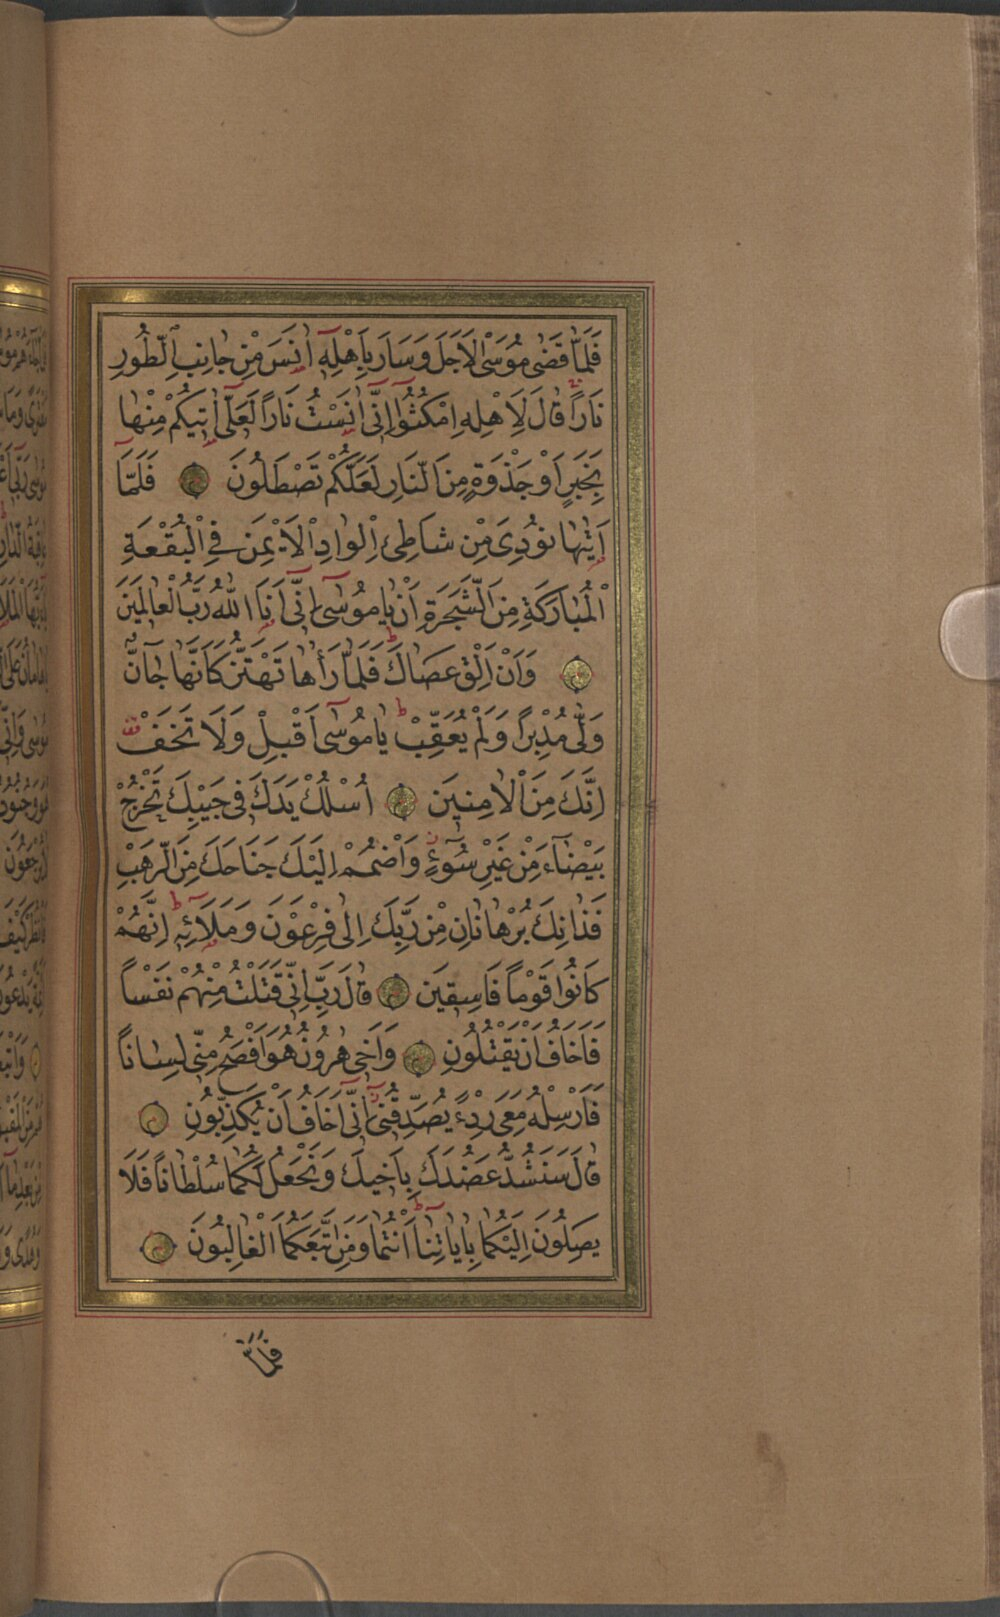 فَلَمَّا قَضٰى مُوسَى الْاَجَلَ وَسَارَ بِاَهْلِهٓ اٰنَسَ مِنْ جَانِبِ الطُّورِ
نَارًا قَالَ لِاَهْلِهِ امْكُثُٓوا اِنّٓى اٰنَسْتُ نَارًا لَعَلّٓى اٰتٖيكُمْ مِنْهَا
بِخَبَرٍ اَوْ جَذْوَةٍ مِنَ النَّارِ لَعَلَّكُمْ تَصْطَلُونَ فَلَمَّٓا
اَتٰيهَا نُودِىَ مِنْ شَاطِئِ الْوَادِ الْاَيْمَنِ فِى الْبُقْعَةِ
الْمُبَارَكَةِ مِنَ الشَّجَرَةِ اَنْ يَامُوسٰٓى اِنّٓى اَنَا اللّٰهُ رَبُّ الْعَالَمٖينَ
وَاَنْ اَلْقِ عَصَاكَ فَلَمَّا رَاٰهَا تَهْتَزُّ كَاَنَّهَا جَٓانٌّ
وَلّٰى مُدْبِرًا وَلَمْ يُعَقِّبْ يَامُوسٰٓى اَقْبِلْ وَلَا تَخَفْ
اِنَّكَ مِنَ الْاٰمِنٖينَ اُسْلُكْ يَدَكَ فٖى جَيْبِكَ تَخْرُجْ
بَيْضَٓاءَ مِنْ غَيْرِ سُٓوءٍ وَاضْمُمْ اِلَيْكَ جَنَاحَكَ مِنَ الرَّهْبِ
فَذَانِكَ بُرْهَانَانِ مِنْ رَبِّكَ اِلٰى فِرْعَوْنَ وَمَلَائِهٖ اِنَّهُمْ
كَانُوا قَوْمًا فَاسِقٖينَ قَالَ رَبِّ اِنّٖى قَتَلْتُ مِنْهُمْ نَفْسًا
فَاَخَافُ اَنْ يَقْتُلُونِ وَاَخٖى هٰرُونُ هُوَ اَفْصَحُ مِنّٖى لِسَانًا
فَاَرْسِلْهُ مَعِىَ رِدْءًا يُصَدِّقُنٖٓى اِنّٓى اَخَافُ اَنْ يُكَذِّبُونِ
قَالَ سَنَشُدُّ عَضُدَكَ بِاَخٖيكَ وَنَجْعَلُ لَكُمَا سُلْطَانًا فَلَا
يَصِلُونَ اِلَيْكُمَا بِاٰيَاتِنَٓا اَنْتُمَا وَمَنِ اتَّبَعَكُمَا الْغَالِبُونَ
فَلَمَّا